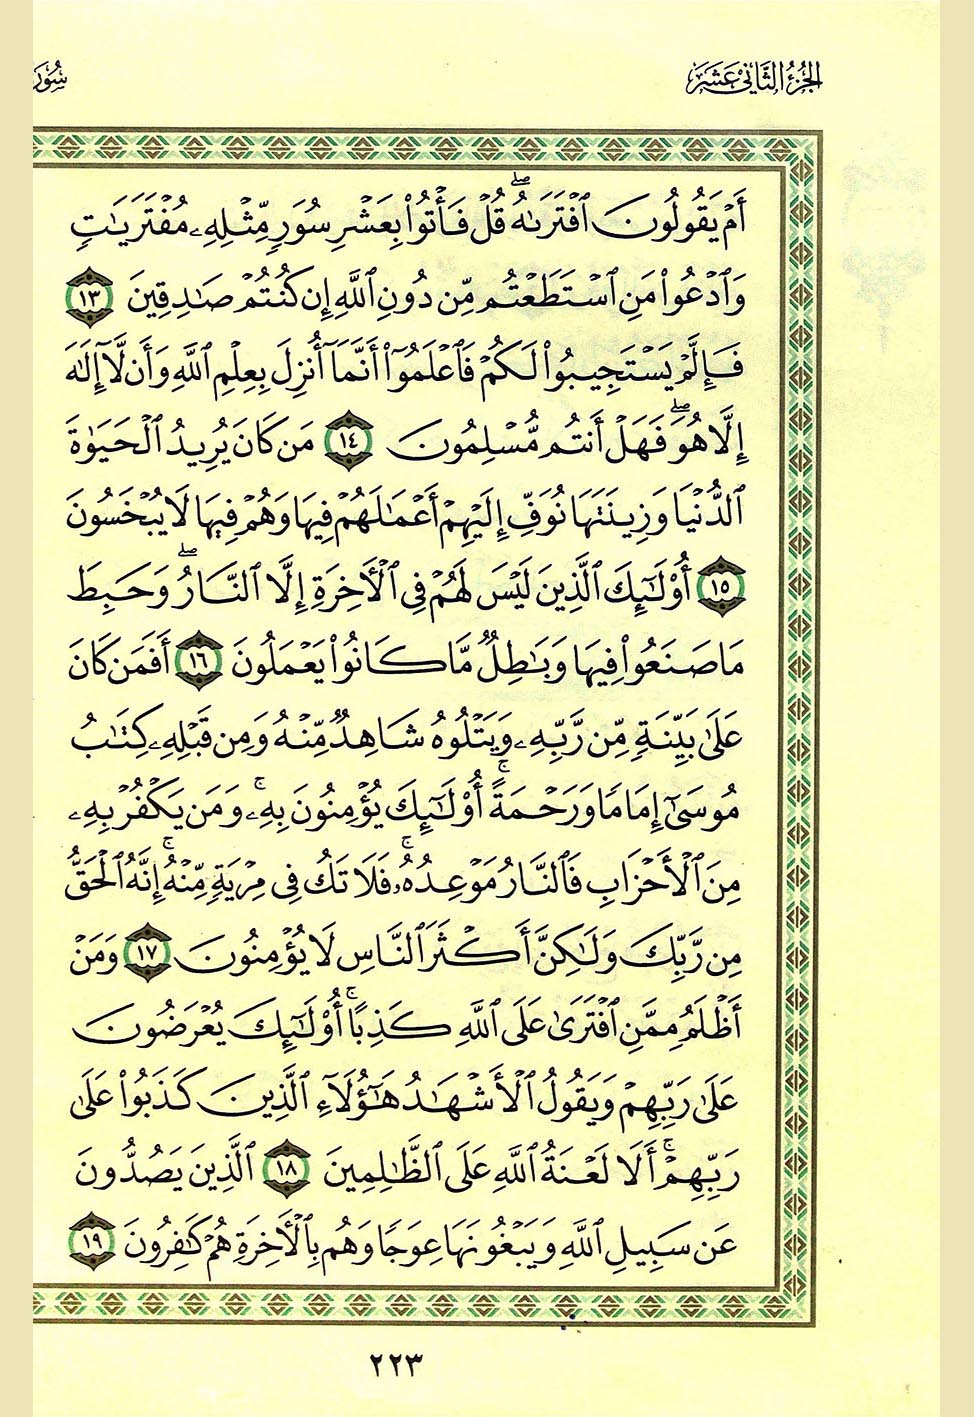 الجُزءُ الثَّانِي عَشَرَ
سُورَ
أَمۡ يَقُولُونَ ٱفۡتَرَىٰهُۖ قُلۡ فَأۡتُواْ بِعَشۡرِ سُوَرٖ مِّثۡلِهِۦ مُفۡتَرَيَٰتٖ
وَٱدۡعُواْ مَنِ ٱسۡتَطَعۡتُم مِّن دُونِ ٱللَّهِ إِن كُنتُمۡ صَٰدِقِينَ ١٣
فَإِلَّمۡ يَسۡتَجِيبُواْ لَكُمۡ فَٱعۡلَمُوٓاْ أَنَّمَآ أُنزِلَ بِعِلۡمِ ٱللَّهِ وَأَن لَّآ إِلَٰهَ
إِلَّا هُوَۖ فَهَلۡ أَنتُم مُّسۡلِمُونَ ١٤ مَن كَانَ يُرِيدُ ٱلۡحَيَوٰةَ
ٱلدُّنۡيَا وَزِينَتَهَا نُوَفِّ إِلَيۡهِمۡ أَعۡمَٰلَهُمۡ فِيهَا وَهُمۡ فِيهَا لَا يُبۡخَسُونَ
١٥ أُوْلَٰٓئِكَ ٱلَّذِينَ لَيۡسَ لَهُمۡ فِي ٱلۡأٓخِرَةِ إِلَّا ٱلنَّارُۖ وَحَبِطَ
مَا صَنَعُواْ فِيهَا وَبَٰطِلٞ مَّا كَانُواْ يَعۡمَلُونَ ١٦ أَفَمَن كَانَ
عَلَىٰ بَيِّنَةٖ مِّن رَّبِّهِۦ وَيَتۡلُوهُ شَاهِدٞ مِّنۡهُ وَمِن قَبۡلِهِۦ كِتَٰبُ
مُوسَىٰٓ إِمَامٗا وَرَحۡمَةًۚ أُوْلَٰٓئِكَ يُؤۡمِنُونَ بِهِۦۚ وَمَن يَكۡفُرۡ بِهِۦ
مِنَ ٱلۡأَحۡزَابِ فَٱلنَّارُ مَوۡعِدُهُۥۚ فَلَا تَكُ فِي مِرۡيَةٖ مِّنۡهُۚ إِنَّهُ ٱلۡحَقُّ
مِن رَّبِّكَ وَلَٰكِنَّ أَكۡثَرَ ٱلنَّاسِ لَا يُؤۡمِنُونَ ١٧ وَمَنۡ
أَظۡلَمُ مِمَّنِ ٱفۡتَرَىٰ عَلَى ٱللَّهِ كَذِبًاۚ أُوْلَٰٓئِكَ يُعۡرَضُونَ
عَلَىٰ رَبِّهِمۡ وَيَقُولُ ٱلۡأَشۡهَٰدُ هَٰٓؤُلَآءِ ٱلَّذِينَ كَذَبُواْ عَلَىٰ
رَبِّهِمۡۚ أَلَا لَعۡنَةُ ٱللَّهِ عَلَى ٱلظَّٰلِمِينَ ١٨ ٱلَّذِينَ يَصُدُّونَ
عَن سَبِيلِ ٱللَّهِ وَيَبۡغُونَهَا عِوَجٗا وَهُم بِٱلۡأٓخِرَةِ هُمۡ كَٰفِرُونَ ١٩
٢٢٣